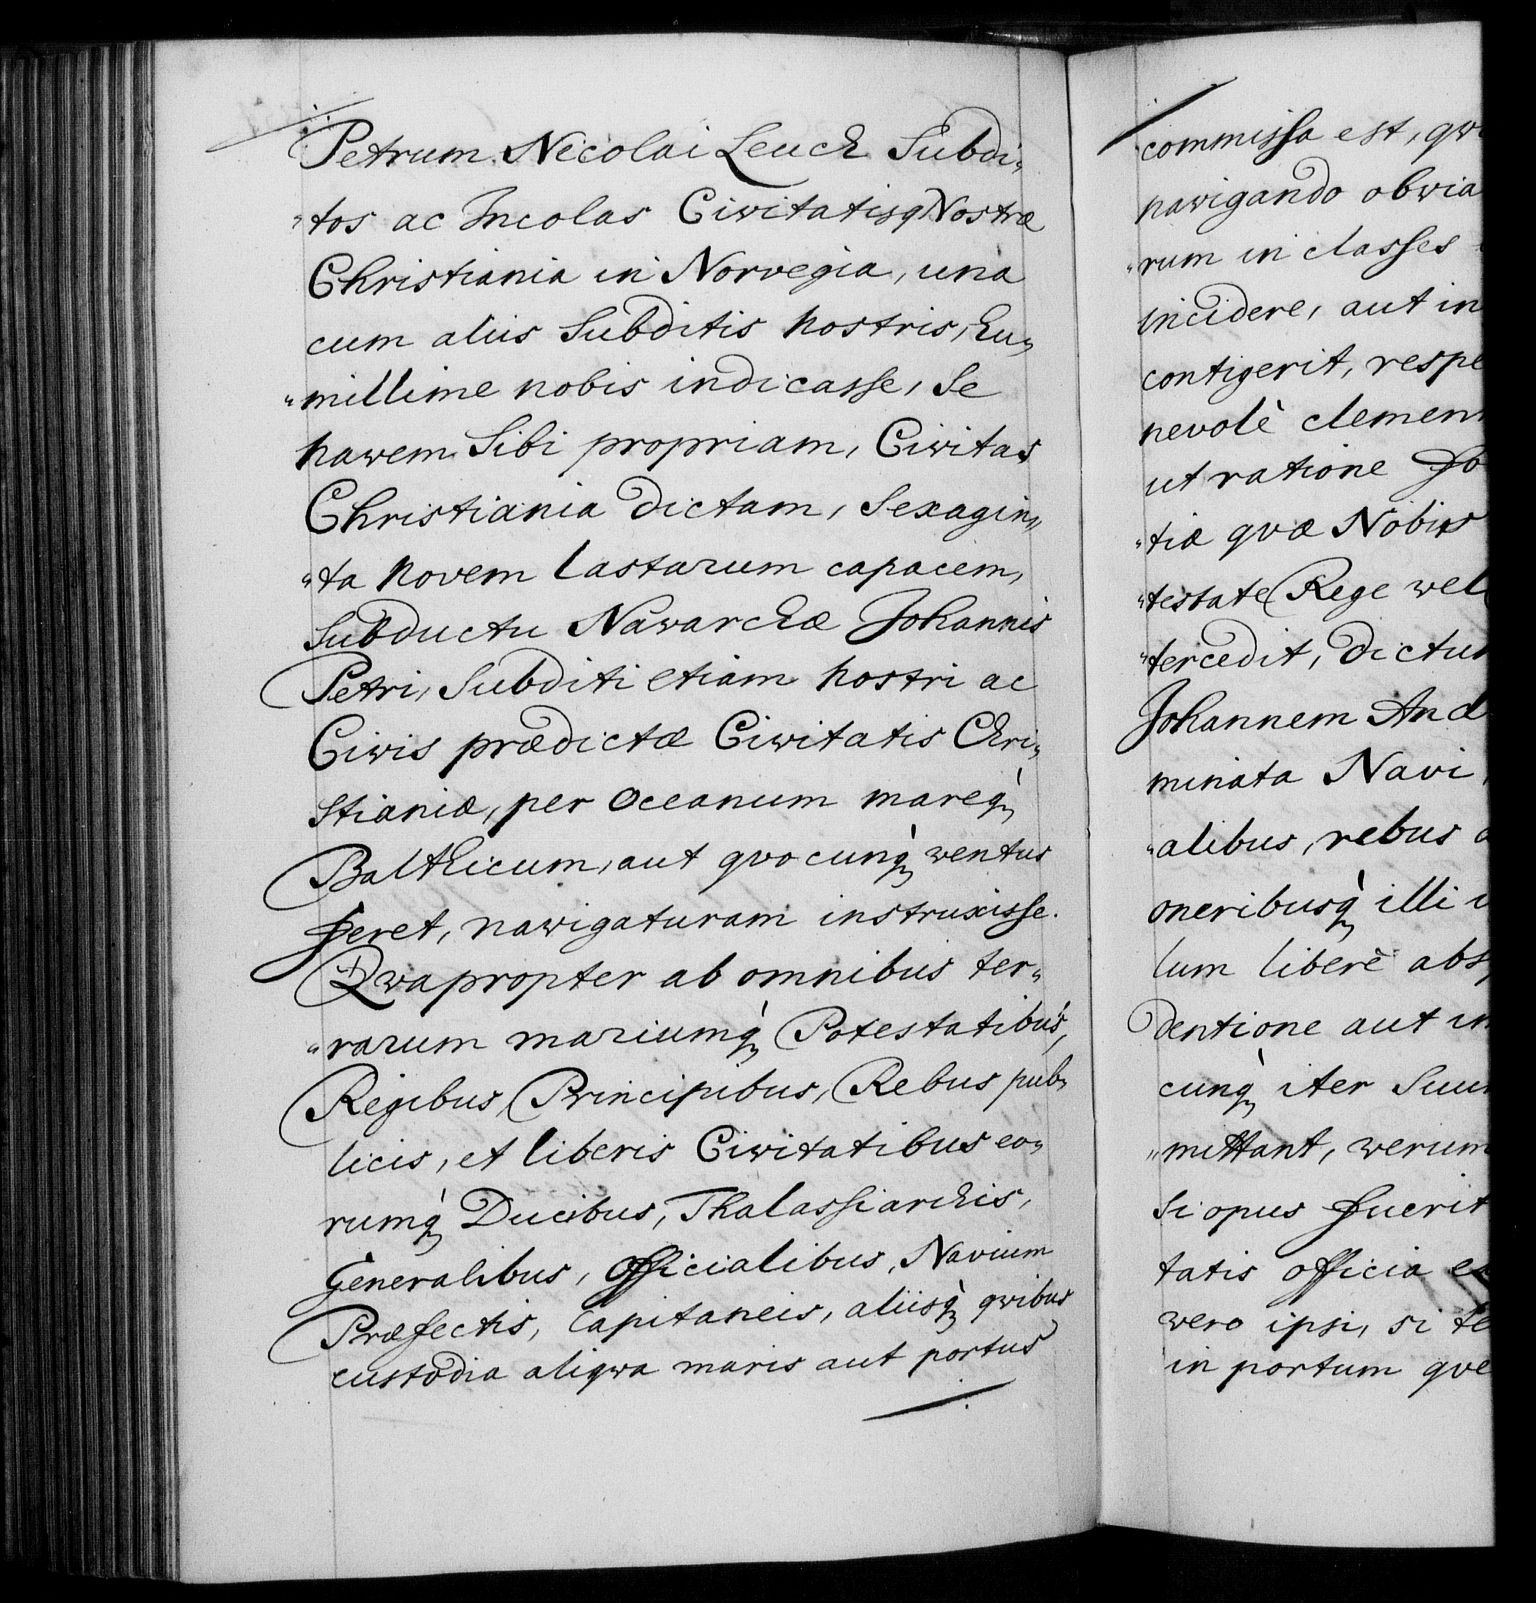 Petrum Nicolai Leuch Subdi„
„tos ac Incolas Civitatisq Nostræ
Christiania in Norvegia, una
cum aliis Subditis nostris, hu„
„millime nobis indicasse, Se
nawem Sibi propriam, Civitas
Christiania dictam, Sexagin„
„ta novem lastarum capacem,
Subductu Nawarchæ Johannis
Petri, Subditi etiam nostri ac
Civis prædictæ Civitatis Chri„
Stianiæ, per Oceanum mareq̀
Balthicum, aut qvocunq̀ wentus
feret, nawigaturam instruxisse.
Qwapropter ab omnibus ter„
„rarum mariumq̀ Potestatibus,
Regibus, Principibus, Rebus pub„
licis, et liberis Civitatibus eo„
rumq̀ Ducibus, Thalassiarchis,
Generalibus, Officialibus, Navium
Præfectis, Capitaneis, aliisq̀ qwibus
custodia aliqwa maris aut portus
commissa est, qw
navigando obvia
„rum in classes
incidere, aut in
contigerit, respe
nevolè clemen
ut ratione fo
„tiæ qvæ Nobis
„testate Rege wel
„tercedit, dictu
Johannem And
minata Navi
„alibus, rebus
oneribusq̀ illi
lum liberè abs
dentione aut in
cunq̀ iter Suu
„mittant, werum
Si opus fuerit
tatis officia
wero ipsi, si te
in portum qve